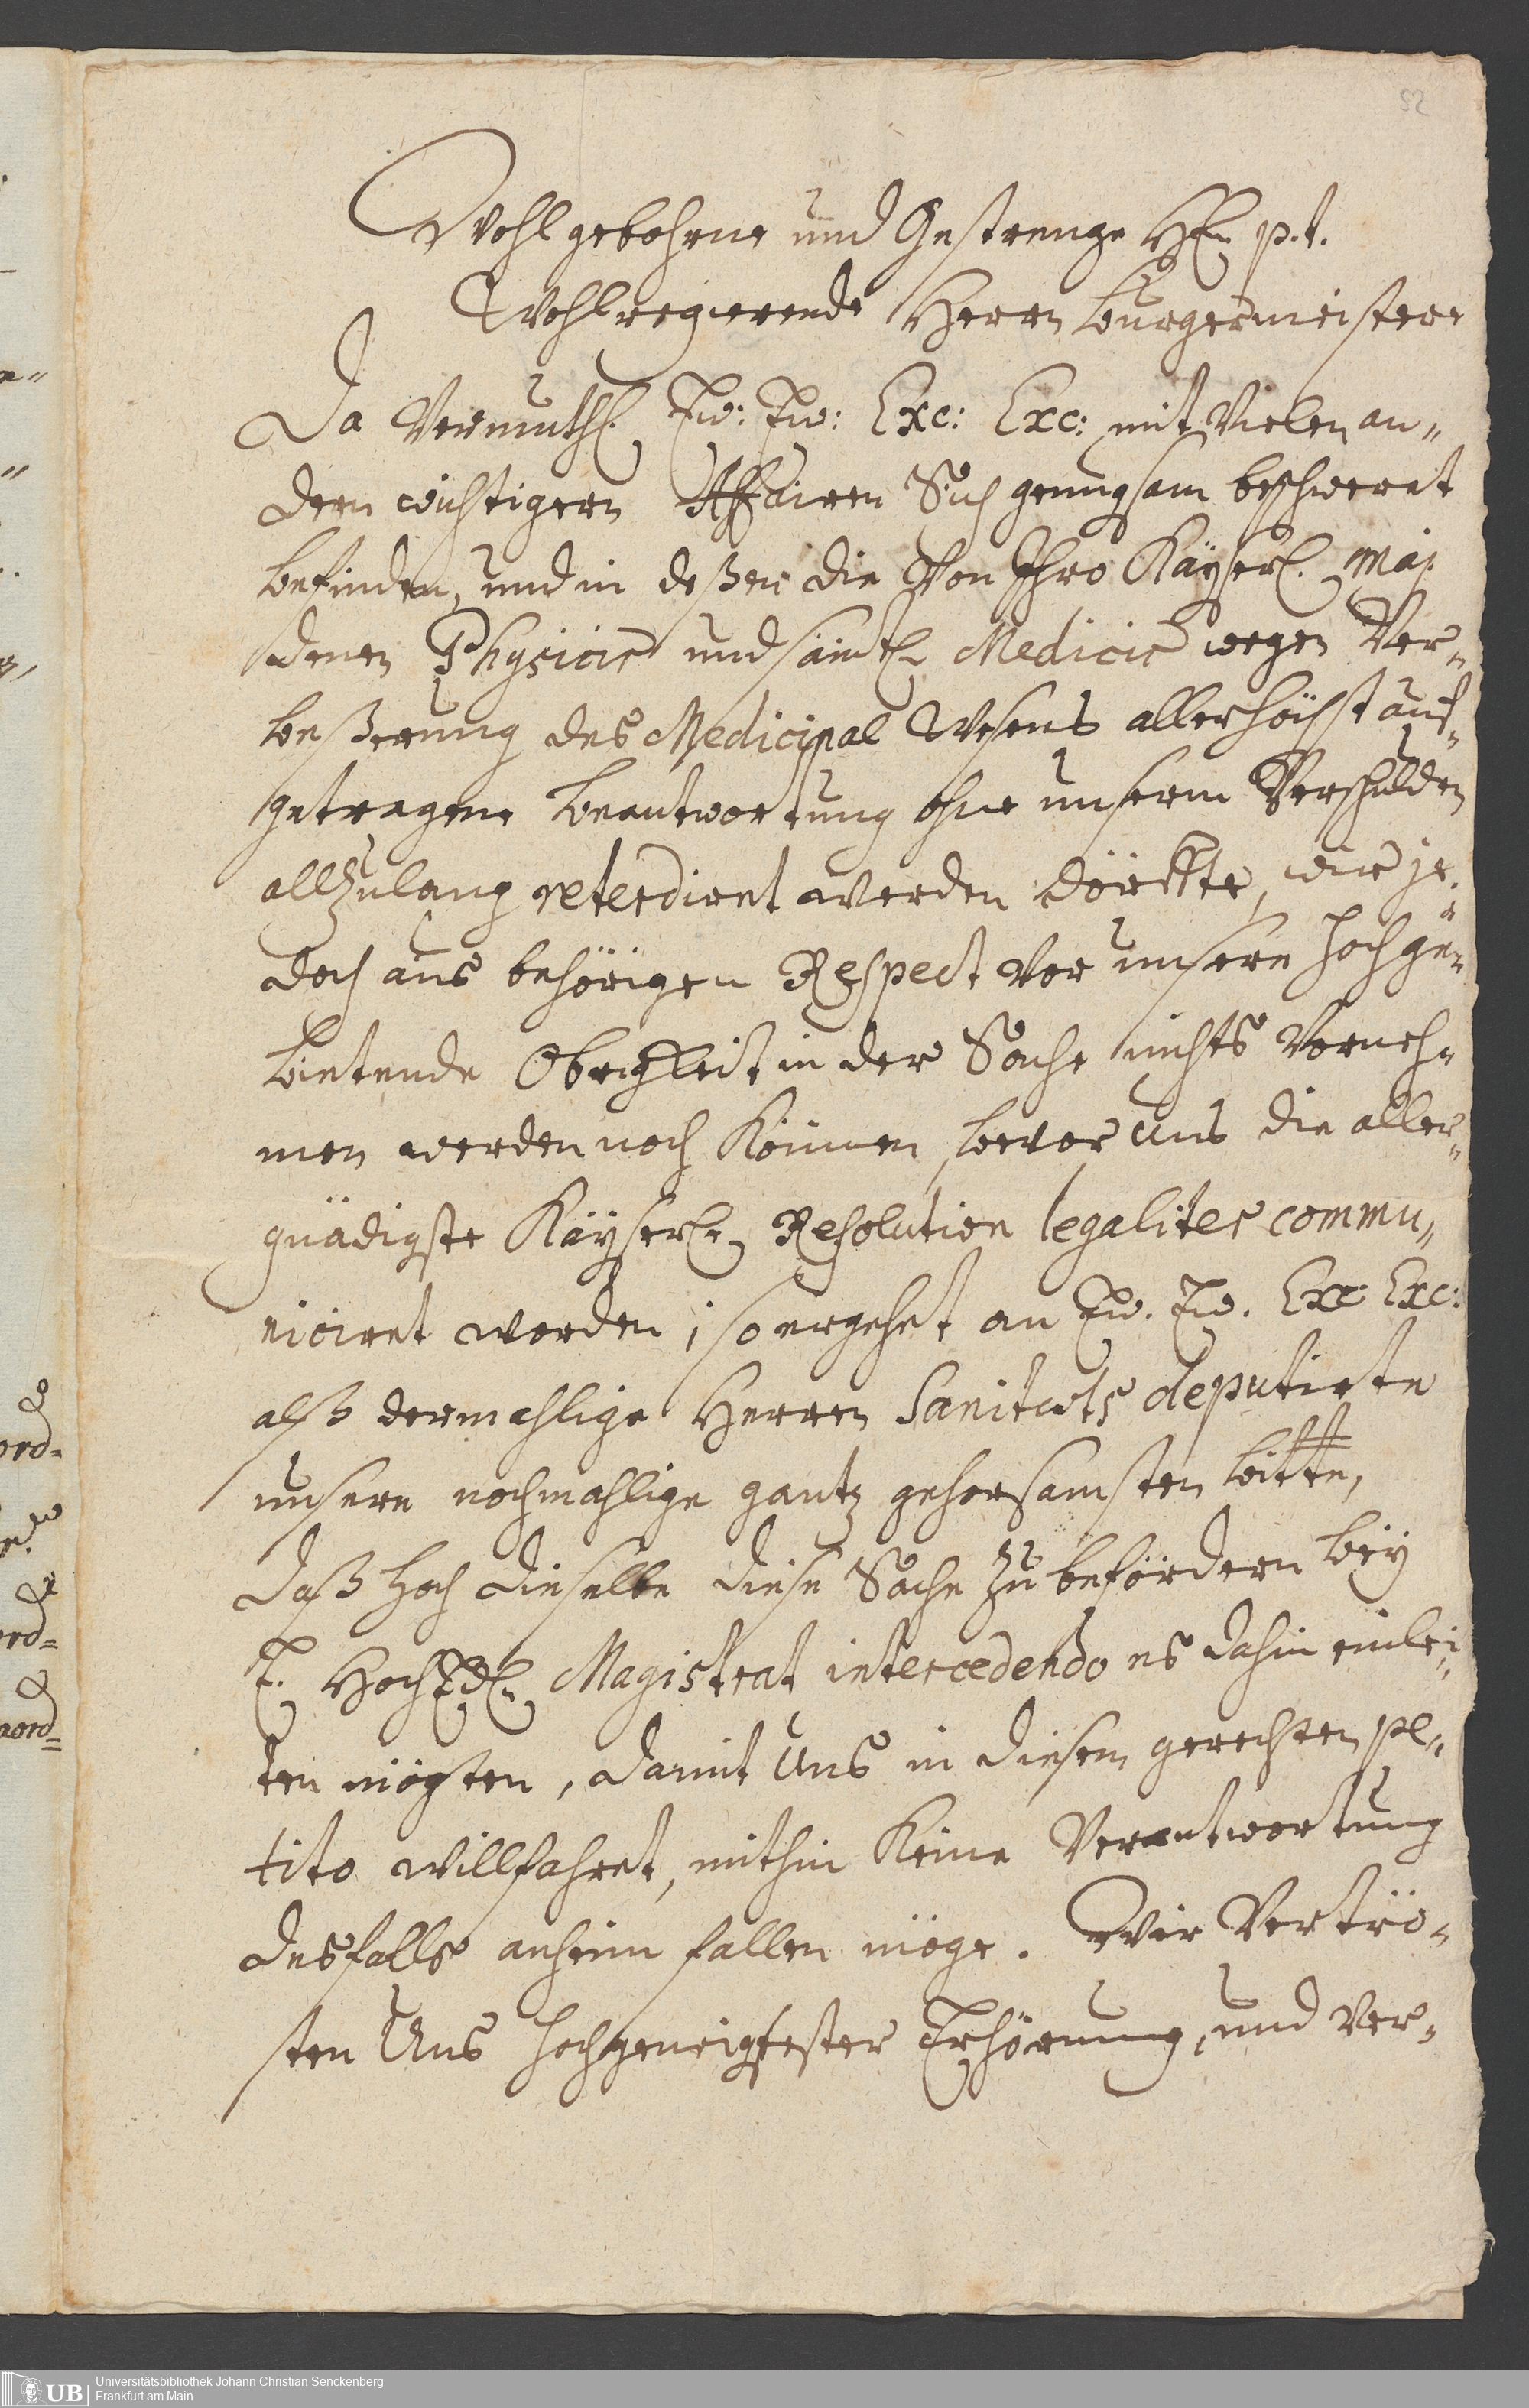 52
Wohlgebohrne und Gestrenge HE. p. t.
Wohlregierende Herrn Burgermeistere
Da Vermuthl. Ew: Ew: Exc: Exc: mit Vielen an„
dern wichtigern Affairen Sich genugsam beschweret
befinden, und in deßen die Von Ihro Kayserl. Maj.
denen Physicis und sämtl. Medicis wegen Ver„
beßerung des Medicinal Wesens allerhöchst auf„
getragene beantwortung ohne unserm Verschulden
allzulang reterdiret werden dörffte, wir je„
doch aus behörigen Respect Vor unsere hochge„
bietende Obrigkeit in der Sache nichts Vorneh„
men werden noch können, bevor uns die aller„
gnädigste Kayserl. Resolution legaliter commu„
niciret worden; so ergehet an Ew. Ew. Exc: Exc:
alß dermahlige Herren Sanitæts deputirte
unsere nochmahlige gantz gehorsamsten bitte,
daß hoch dieselbe diese Sache zu befördern bey
E. HochEdl. Magistrat intercedendo es dahin einlei„
ten mögten, damit Uns in diesem gerechten pe„
tito willfahret, mithin keine Verantwortung
desfalls anheim fallen möge. Wir Vertrö„
sten Uns hochgeneigtester Erhörung, und Ver„
ord=
ord=
nord=
UB
Universitätsbibliothek Johann Christian Senckenberg
Frankfurt am Main